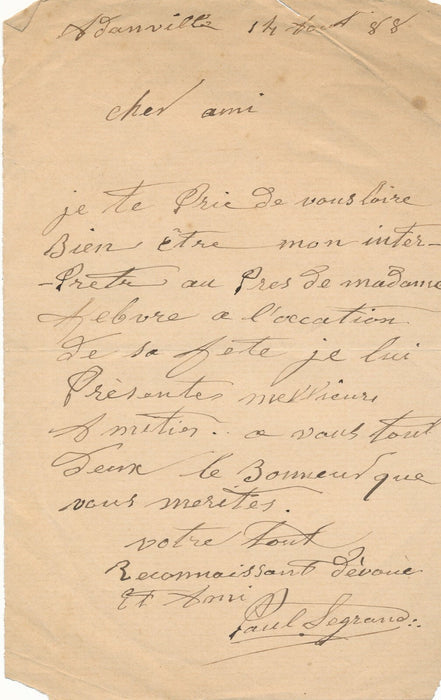 Adanville 14 Aout 88
cher ami
je te Prie de vousloire
Bien être mon inter-
-Pretr au Pres de madame
febvre a l'occation
de sa fete je lui
Présentes mellieurs
Amitier.. a vous tout
Deux le Bonneur que
vous merités.
votre tout
Reconnaissant dévoué
Et Ami
Paul Legrand